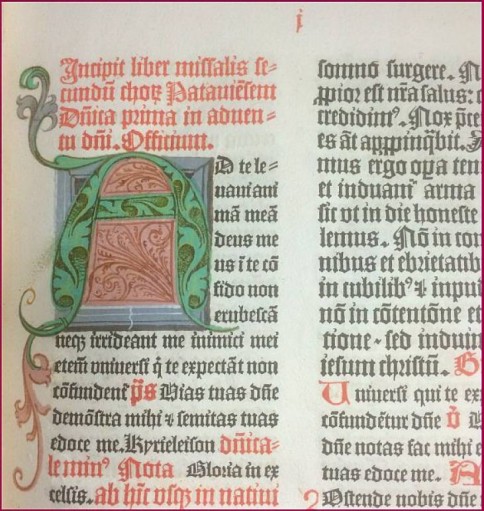 i
Incipit liber missalis se-
cundū chorū Patauiēsem
Dñica prima in aduen-
tu dñi. Officium.
AD te le-
uaui animā
mā meā
deus me
us ī te cō
fido non
erubescā
neqz irrideant me inimici mei
etem̄ vniuersi q̄ te expectāt non
cōfundent̄ p̄s Vias tuas dñe
demōstra mihi ⁊ semitas tuas
edoce me. Kyrieleison dñica-
le minꝰ Nota Gloria in ex
celsis. ab hīc vsqz in natiui
somno surgere.
ꝓpior est nr̄a salus:
credidimꝰ. Nox
es āt
mus ergo oꝑa
et induam̄ arma
sic vt in die honeste
lemus. Nō in
nibus et ebrietatib
in cubilibꝰ ⁊
nō in cōtentōne et
tione. sed
iesum christū.
Uniuersi qui te
cōfundētur dñe
dñe notas fac mihi
tuas edoce me.
Ostende nobis dñe